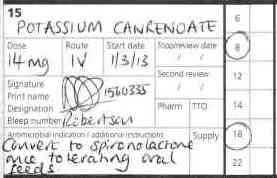 15
POTASSIUM CANRENOATE
Dose Route Start date Stop/review date
14mg IV 1/3/13 / /
Signature
Print name
Designation
Bleep number
1560335
Robertson
Second review
/ /
Pharm TTO
Antimicrobial indication / additional instructions Supply
Convert to spironolactone
once tolerating oral
feeds.
6
8
12
14
18
22